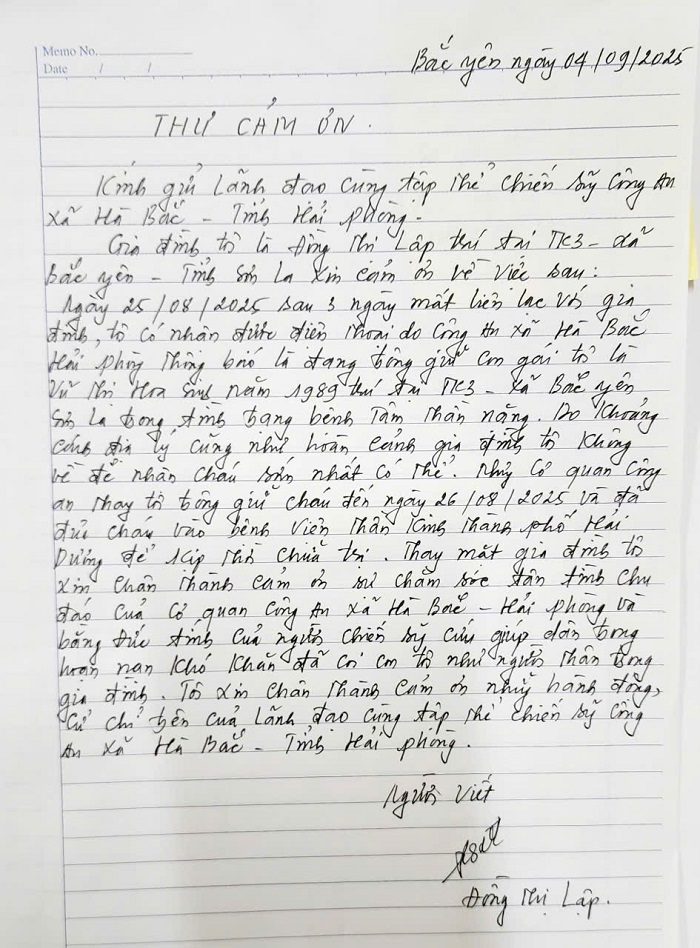 Memo No.
Date / /
Bắc Yên ngày 04/09/2025
THƯ CẢM ƠN.
Kính gửi Lãnh đạo cùng tập thể chiến sỹ Công An
xã Hà Bắc - Tỉnh Hải Phòng.
Gia đình tôi là Đồng Thị Lập trú tại TK3 - xã
Bắc Yên - Tỉnh Sơn La xin cảm ơn về việc sau:
Ngày 25/08/2025 sau 3 ngày mất liên lạc với gia
đình, tôi có nhận được điện thoại do Công An xã Hà Bắc
Hải phòng thông báo là đang trông giữ con gái tôi là
Vũ Thị Hoa sinh năm 1989 trú tại TK3 - xã Bắc Yên
Sơn La trong tình trạng bệnh Tâm thần nặng. Do khoảng
cách địa lý cũng như hoàn cảnh gia đình tôi không
về để nhận cháu sớm nhất có thể. Nhưng Cơ quan Công
an thay tôi trông giữ cháu đến ngày 26/08/2025 và đã
đưa cháu vào bệnh viện Thần Kinh Thành phố Hải
Dương để kịp thời chữa trị. Thay mặt gia đình tôi
xin chân thành cảm ơn sự chăm sóc tận tình chu
đáo của Cơ quan Công An xã Hà Bắc - Hải phòng và
bằng đức tính của người chiến sỹ cứu giúp dân trong
hoạn nạn khó khăn đã coi con tôi như người thân trong
gia đình. Tôi xin chân thành cảm ơn những hành động,
cử chỉ trên của Lãnh đạo cùng tập thể chiến sỹ Công
An xã Hà Bắc - Tỉnh Hải phòng.
Người Viết
Đồng Thị Lập.